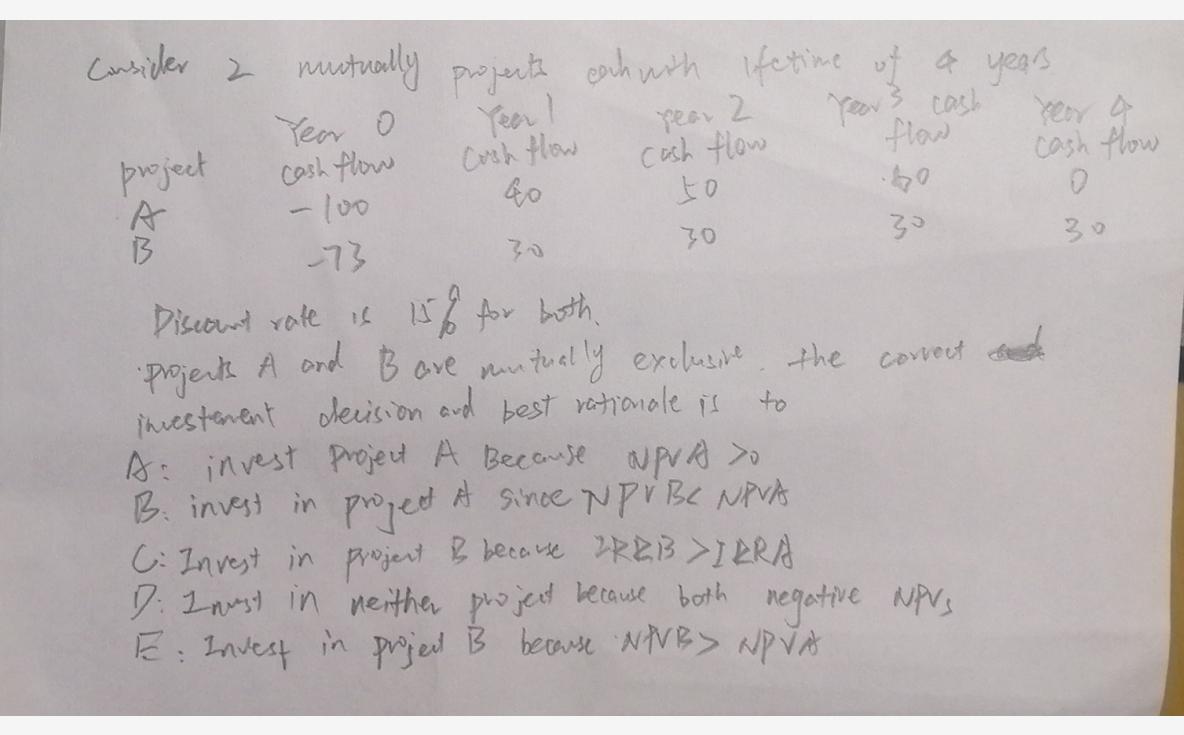 Consider 2 mutually projects each with lifetime of 4 years
project Year 0 cash flow Year 1 cash flow year 2 cash flow Year 3 cash flow Year 4 cash flow
A -100 40 50 0
B -73 30 30 30 30
Discount rate is 15% for both.
projects A and B are mutually exclusive. the correct
investement decision and best rationale is to
A: invest Project A Because NPVA >0
B: invest in project A since NPVB< NPVA
C: Invest in project B because IRRB >IRRA
D: Invest in neither project because both negative NPVs
E: Invest in project B because NPVB> NPVA